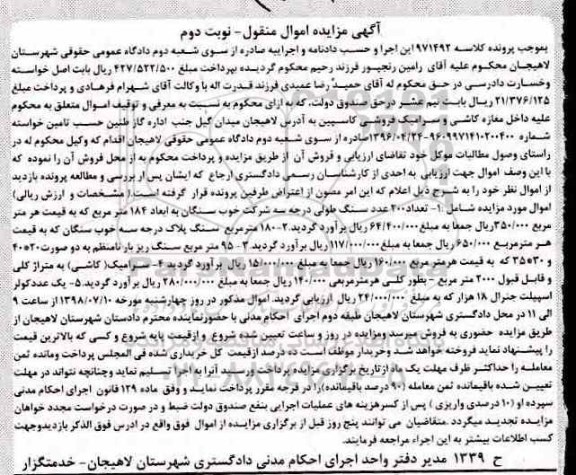 آگهی مزایده اموال منقول - نوبت دوم
بموجب پرونده کلاسه ۹۷۱۴۹۲ این اجرا و حسب دادنامه و اجراییه صادره از سوی شعبه دوم دادگاه عمومی حقوقی شهرستان
لاهیجان محکوم علیه آقای رامین رنجپور فرزند رحیم محکوم گردیده بپرداخت مبلغ ۴۲۷/۵۲۲/۵۰۰ ریال بابت اصل خواسته
وخسارت دادرسی در حق محکوم له آقای حمید رضا عمیدی فرزند قدرت اله با وکالت آقای شهرام فرهادی و پرداخت مبلغ
۲۱/۳۷۶/۱۲۵ ریال بابت نیم عشر درحق صندوق دولت، که به ازای محکوم به نسبت به معرفی و توقیف اموال متعلق به محکوم
علیه داخل مغازه کاشی و سرامیک فروشی کاسپین به آدرس لاهیجان میدان گیل جنب اداره گاز طنین حسب تامین خواسته
شماره ۹۶۰۹۹۷۱۴۱۰۲۰۰۴۰۰-۱۳۹۶/۰۴/۲۴ صادره از سوی شعبه دوم دادگاه عمومی حقوقی لاهیجان اقدام که وکیل محکوم له در
راستای وصول مطالبات موکل خود تقاضای ارزیابی و فروش آن از طریق مزایده و پرداخت محکوم به از محل فروش آن را نموده که
با این وصف اموال جهت ارزیابی به احدی از کارشناسان رسمی دادگستری ارجاع که ایشان پس از بررسی و مطالعه پرونده بازدید
از اموال نظر خود را به شرح ذیل اعلام که این امر مصون از اعتراض طرفین پرونده قرار گرفته است.( مشخصات و ارزش ریالی)
اموال مورد مزایده شامل :۱- تعداد۲۰۰ عدد سنگ طولی درجه سه شرکت خوب سنگان به ابعاد ۱۸۴ متر مربع که به قیمت هر متر
مربع ۳۵۰/۰۰۰ریال جمعا به مبلغ ۶۴/۴۰۰/۰۰۰ ریال برآورد گردید.۲-۱۸۰مترمربع سنگ پلاک درجه سه خوب سنگان که به قیمت
هر مترمربع ۶۵۰/۰۰۰ ریال جمعا به مبلغ ۱۱۷/۰۰۰/۰۰۰ریال برآورد گردید.۳- ۹۵ متر مربع سنگ ریز بار نامنظم به دو صورت۲۰*۴۰
و ۳۰*۳۵ که به قیمت هرمتر مربع ۱۶۰/۰۰۰ریال جمعا به مبلغ ۱۵/۰۰۰/۰۰۰ ریال برآورد گردید.۴- سرامیک( کاشی) به متراژ کلی
و قابل قبول ۲۰۰۰ متر مربع - بطور کلی هرمترمربعی ۱۴۰/۰۰۰ ریال جمعا به مبلغ ۲۸۰/۰۰۰/۰۰۰ ریال برآورد گردید.۵- یک عددکولر
اسپیلت جنرال ۱۸ هزار که به مبلغ ۲۴/۰۰۰/۰۰۰ ریال ارزیابی گردید. اموال مذکور در روز چهارشنبه مورخه ۱۳۹۸/۰۷/۱۰ از ساعت ۹
الی ۱۱ در محل دادگستری شهرستان لاهیجان طبقه دوم اجرای احکام مدنی با حضورنماینده محترم دادستان شهرستان لاهیجان از
طریق مزایده حضوری به فروش میرسد ومزایده در روز و ساعت تعیین شده شروع و ازقیمت پایه شروع و کسی که بالاترین قیمت
را پیشنهاد نماید فروخته خواهد شد وخریدار موظف است ده درصد ازقیمت کل خریداری شده فی المجلس پرداخت ومانده ثمن
معامله را حداکثر ظرف مهلت یک ماه ازتاریخ برگزاری مزایده پرداخت ورسید آنرا به این تسلیم نماید وچنانچه نتواند در مهلت
تعیین شده باقیمانده ثمن معامله (۹۰ درصد باقیمانده)را در فرجه مقرر پرداخت نماید و وفق ماده ۱۲۹ قانون اجرای احکام مدنی
سپرده او (۱۰ درصدی واریزی ) پس از کسرهزینه های عملیات اجرایی بنفع صندوق دولت ضبط و در صورت درخواست مجدد خواهان
مزایده تجدید میگردد .متقاضیان می توانند پنج روز قبل از برگزاری مزایده از اموال فوق واقع در ادرس فوق الذکر بازدیدوجهت
کسب اطلاعات بیشتر به این اجراء مراجعه فرمایند.
ح ۱۳۳۹ مدیر دفتر واحد اجرای احکام مدنی دادگستری شهرستان لاهیجان- خدمتگزار